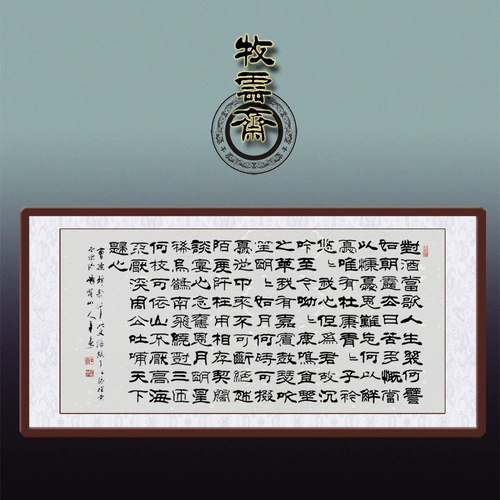 牧霝齋
對酒當歌人生幾何譬
如朝露去日苦多慨當
以慷憂思難忘何以解
憂唯有杜康青〻子衿
悠〻我心但為君故沉
吟至今呦〻鹿鳴食野
之苹我有嘉賓鼓瑟吹
笙明〻如月何時可掇
憂從中來不可斷絕越
陌度阡枉用相存契闊
談宴心念舊恩月明星
稀烏鵲南飛繞樹三匝
何枝可依山不厭高海
不厭深周公吐哺天下
歸心
曹操短歌行